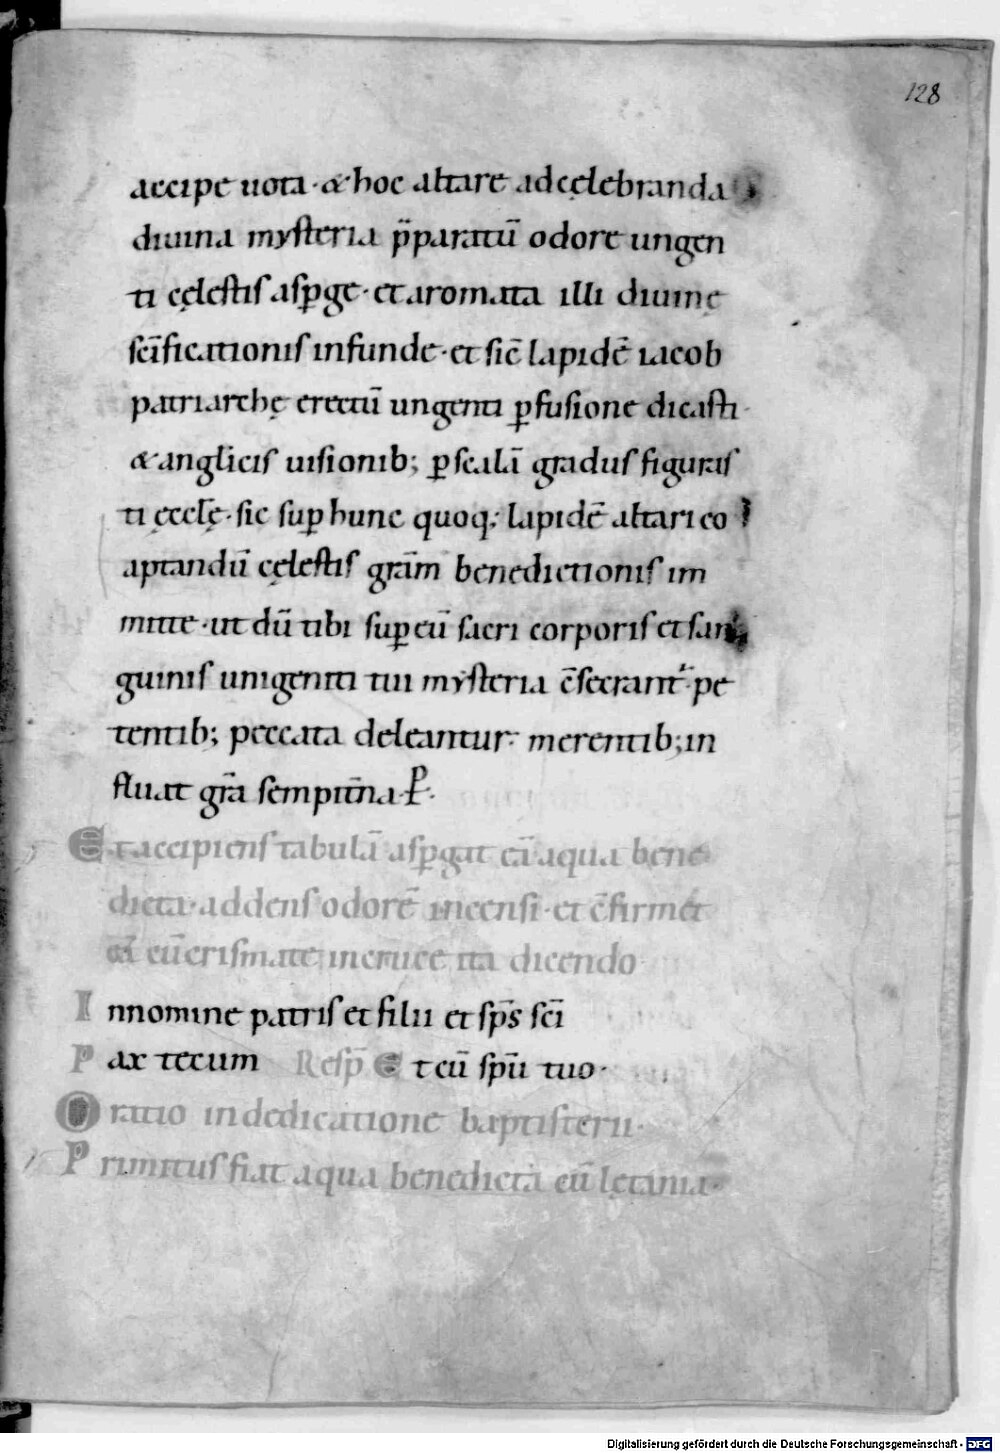 128
accipe uota · & hoc altare ad cęlebranda
diuina mysteria p̄paratū odore ungen
ti cęlestis asꝑge · et aromata illi diuinę
sc̄ificationis infunde · et sic̄ lapidē iacob
patriarchę erectū ungenti ꝑfusione dicasti ·
& anglicis uisionib; ꝑ scalā gradus figuras
ti ęccl̄ę · sic suꝑ hunc quoq; lapidē altari co
aptandū cęlestis grām benedictionis im
mitte · ut dū tibi suꝑ eū sacri corporis et san
guinis unigeniti tui mysteria c̄secrant᷑ · pe
tentib; peccata deleantur · merentib; in
fluat grā sempit̄na · P̱ ·
Et accipiens tabulā asꝑgat eā aqua bene
dicta · addens odorē incensi · et c̄firmet
eā cū crismate in cruce ita dicendo
In nomine patris et filii et sp̄s sc̄i
Pax tecum Resp̄ Et cū spū tuo ·
Oratio in dedicatione baptisterii ·
Primitus fiat aqua benedicta cū lętania ·
Digitalisierung gefördert durch die Deutsche Forschungsgemeinschaft - DFG